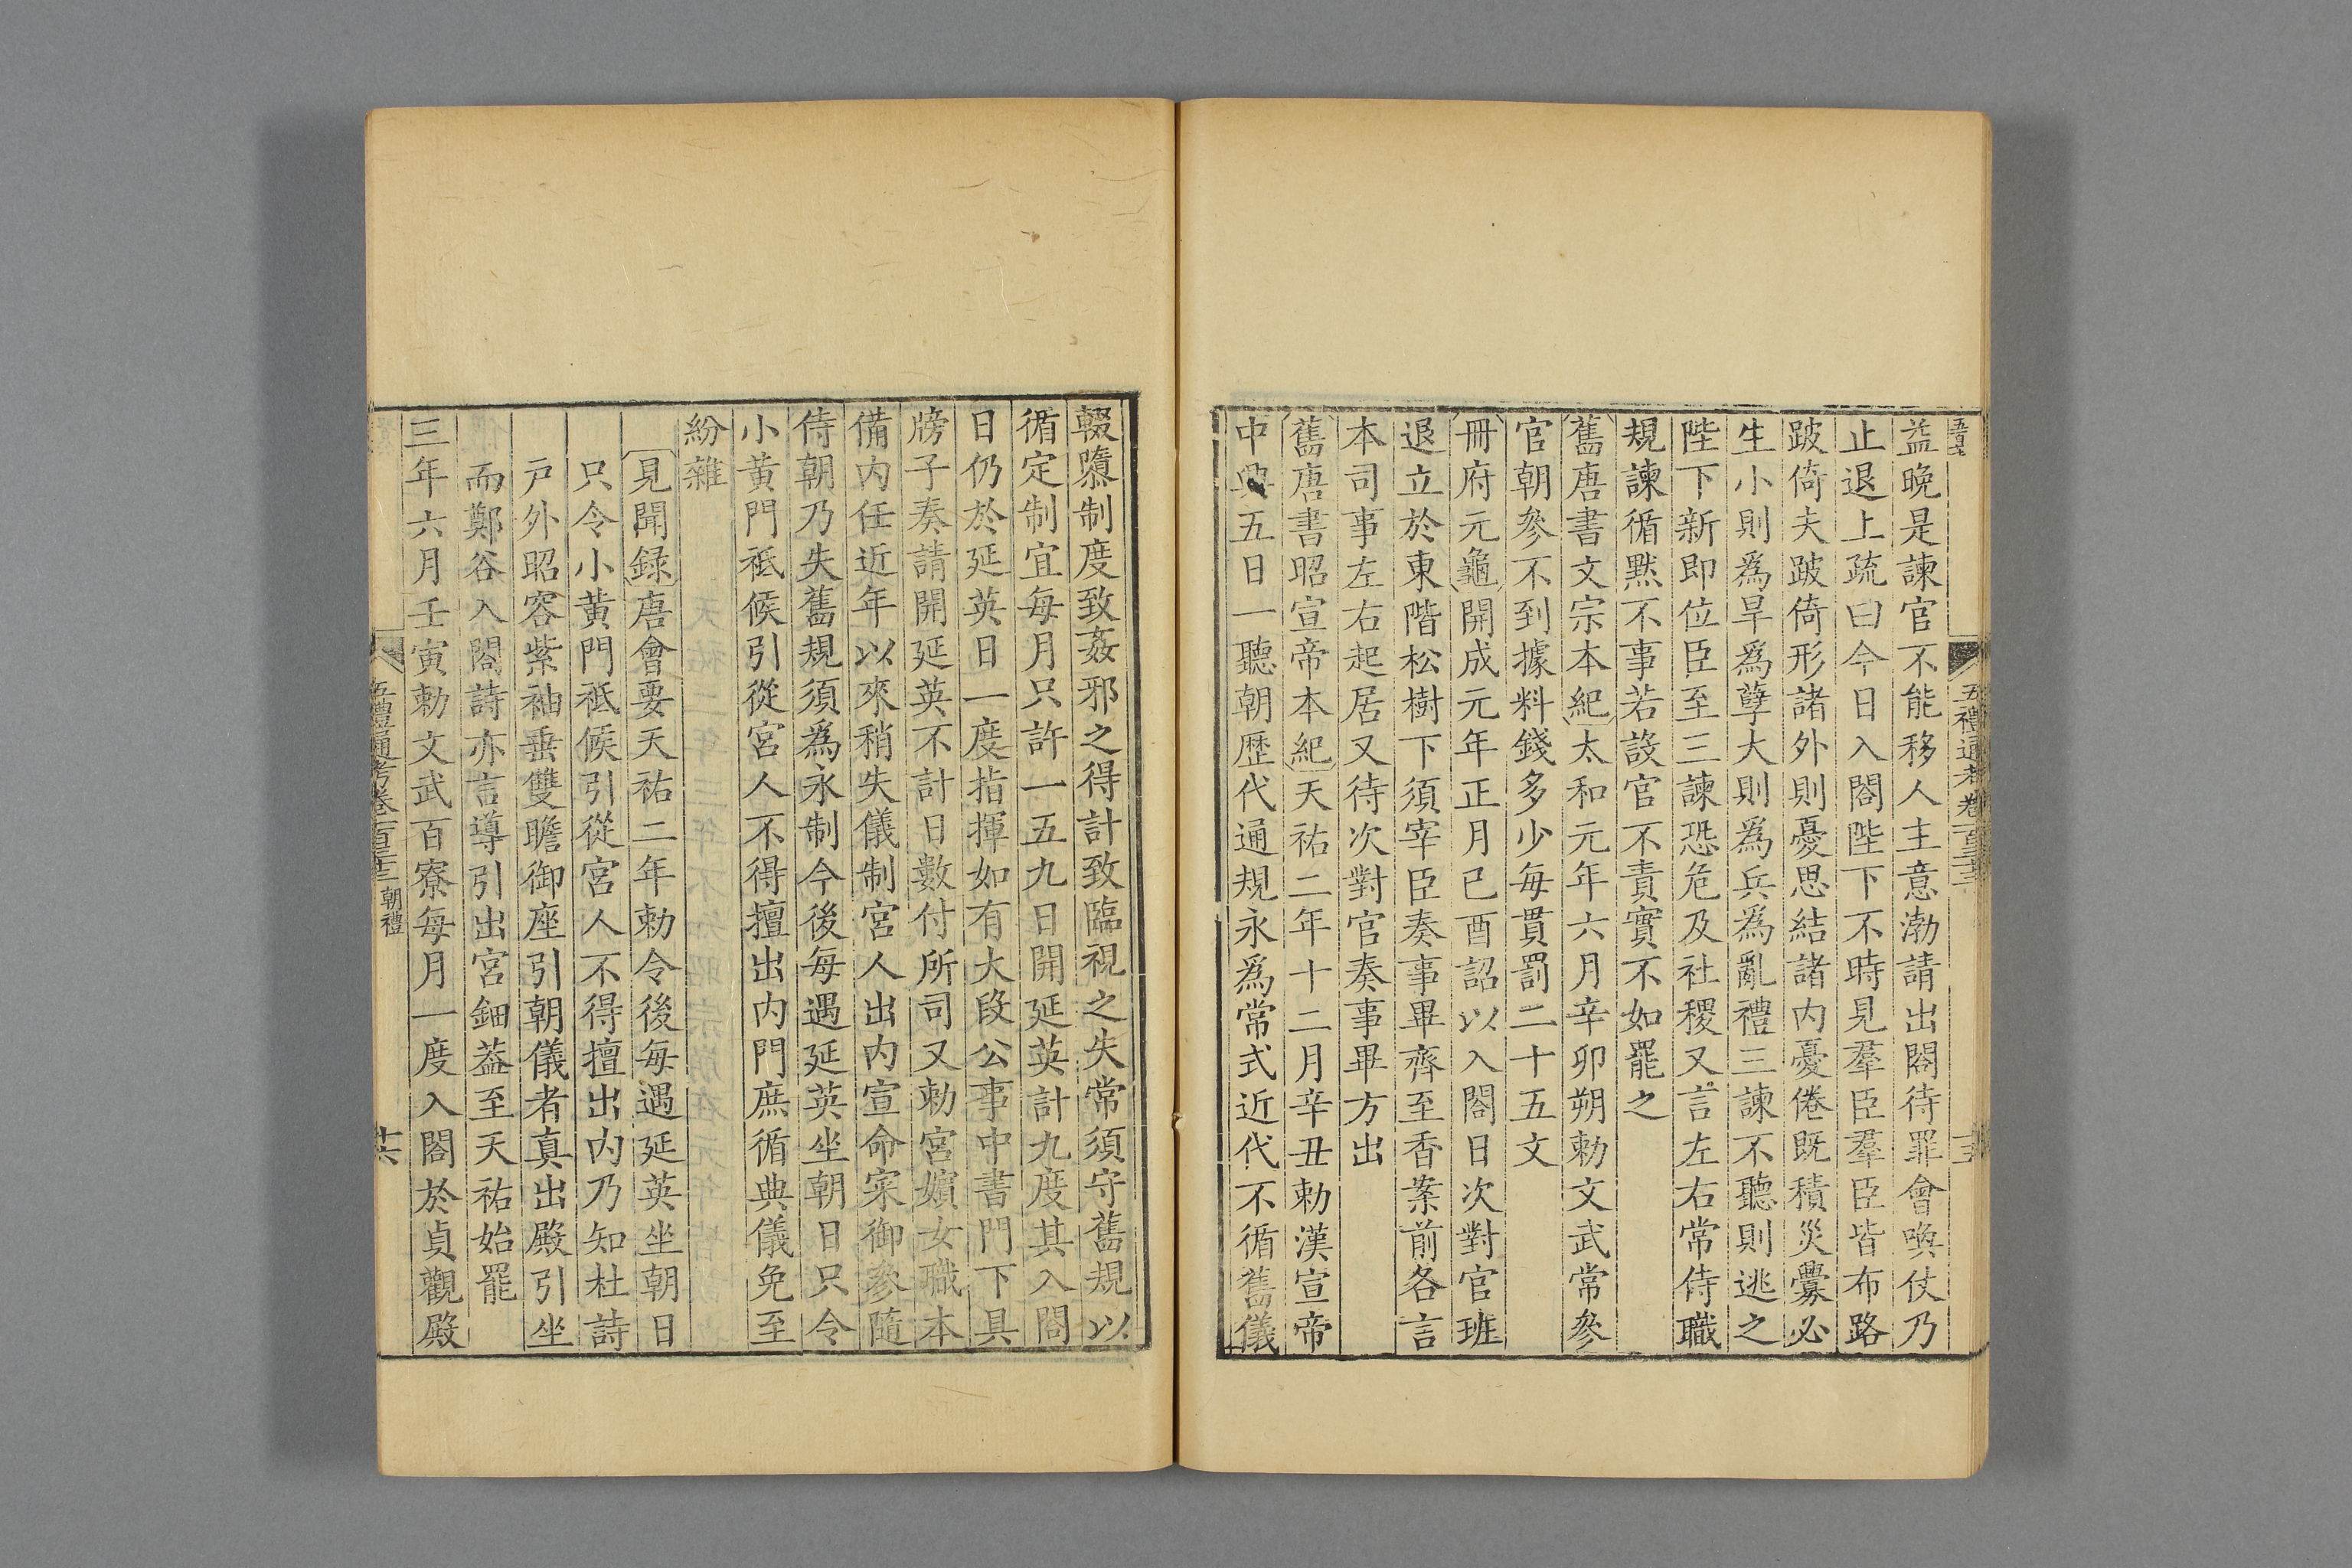 五禮通考卷一百三十二
益晚是諫官不能移人主意渤請出閤待罪會喚仗乃
止退上疏曰今日入閤陛下不時見羣臣羣臣皆布路
跛倚夫跛倚形諸外則憂思結諸内憂倦既積災釁必
生小則爲旱爲孽大則爲兵爲亂禮三諫不聽則逃之
陛下新即位臣至三諫恐危及社稷又言左右常侍職
規諫循黙不事若設官不責實不如罷之
舊唐書文宗本紀太和元年六月辛卯朔勅文武常參
官朝參不到據料錢多少每貫罰二十五文
冊府元龜開成元年正月己酉詔以入閤日次對官班
退立於東階松樹下須宰臣奏事畢齊至香案前各言
本司事左右起居又待次對官奏事畢方出
舊唐書昭宣帝本紀天祐二年十二月辛丑勅漢宣帝
中興五日一聽朝歴代通規永爲常式近代不循舊儀
輟隳制度致姦邪之得計致臨視之失常須守舊規以
循定制宜每月只許一五九日開延英計九度其入閤
日仍於延英日一度指揮如有大段公事中書門下具
牓子奏請開延英不計日數付所司又勅宮嬪女職本
備内任近年以來稍失儀制宮人出内宣命寀御參隨
侍朝乃失舊規須爲永制今後每遇延英坐朝日只令
小黃門祗候引從宮人不得擅出内門庶循典儀免至
紛雜
見聞録唐會要天祐二年勅令後每遇延英坐朝日
只令小黃門祗候引從宮人不得擅出内乃知杜詩
戸外昭容紫袖垂雙瞻御座引朝儀者真出殿引坐
而鄭谷入閤詩亦言導引出宮鈿葢至天祐始罷
三年六月壬寅勅文武百寮每月一度入閤於貞觀殿
五禮通考卷一百三十二 朝禮
十六